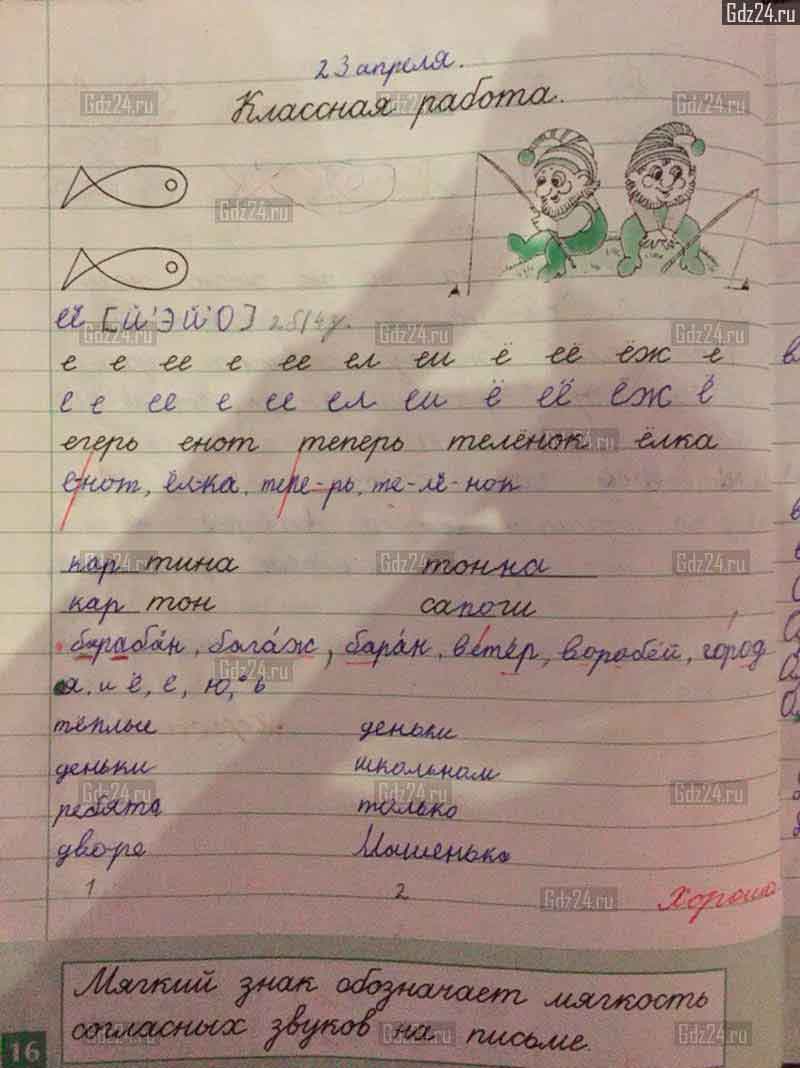 Gdz24.ru
23 апреля.
Классная работа.
её [Й'ЭЙ'О] 2б/4
е е ее е ее ел еи ё её ёж ё
е е ее е ее ел еи ё её ёж ё
егерь енот теперь телёнок ёлка
е-нот, ёл-ка, тере-рь, те-лё-нок
кар тина тонна
кар тон сапоги
барабан, багаж, баран, ветер, воробей, город
я, и ё, е, ю, ь
тёплые деньки
деньки школьном
ребята только
дворе Машенька
1 2
Хорошо
Мягкий знак обозначает мягкость
согласных звуков на письме.
16